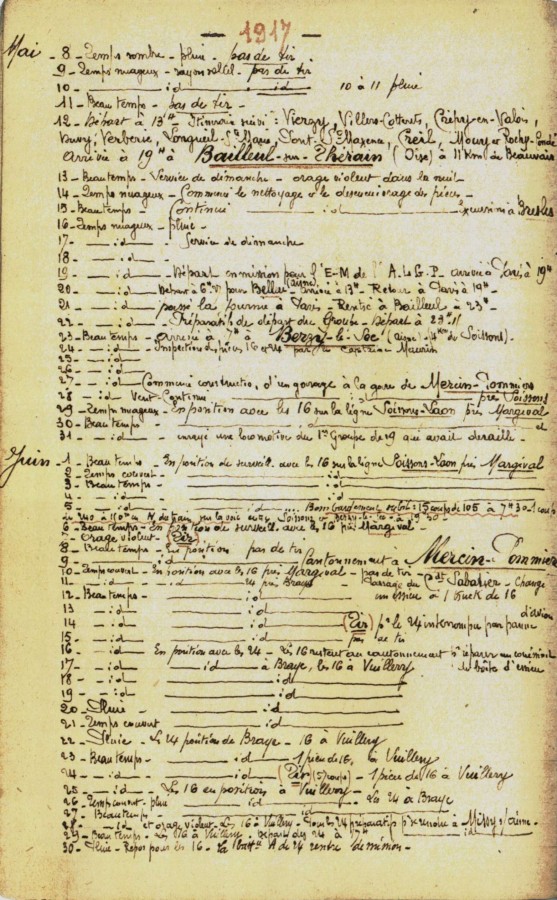 — 1917 —
Mai - 8 - Temps sombre - pluie - pas de tir
9 - Temps nuageux - rayon soleil - pas de tir
10 - — id — id — 10 à 11 pluie
11 - Beau temps - pas de tir -
12 - Départ à 13h - Itinéraire suivi : Vierzy, Villers-Cotterets, Crépy-en-Valois,
Duvy, Verberie, Longueil-Ste Marie, Pont-Ste Maxence, Creil, Mouy et Rochy-Condé
Arrivée à 19h à Bailleul-sur-Thérain (Oise) à 11 Km de Beauvais
13 - Beau temps - Service de dimanche - orage violent dans la nuit
14 - Temps nuageux - Commencé le nettoyage et le des des pièces -
15 - Beau temps - Continué — id — Excursion à Bresles
16 - Temps nuageux - pluie -
17 - — id — Service de dimanche
18 - — id —
19 - — id — Départ en mission pour l'E-M de l'A.L.G.P. arrivée à Paris à 19h
20 - — id — Départ à 6h pour Belleu (Aisne) Arrivée à 13h - Retour à Paris à 19h -
21 - — id — passé la journée à Paris - Rentré à Bailleul à 23h -
22 - — id — Préparatifs de départ du Groupe - Départ à 23h
23 - Beau temps - arrivée à 7h à Berzy-le-Sec (Aisne - Km de Soissons) -
24 - — id — Inspection des pièces 16 et 24 par le capitaine Meunier
25 - — id —
26 - — id —
27 - — id — Commencé construction d'un garage à la gare de Mercin-Pommiers
28 - — id Vent - Continué — id — près Soissons
29 - Temps nuageux - En position avec les 16 sur la ligne Soissons-Laon près Margival
30 - Beau temps - — id — id
31 - — id — enrayé une locomotive du 1er Groupe de 19 qui avait déraillé -
Juin - 1 - Beau temps - En position de surveill. avec les 16 sur la ligne Soissons-Laon près Margival
2 - Temps couvert - — id —
3 - Beau temps - — id —
4 - — id — id —
5 - — id — id — Bombardement : 15 coups de 105 à 7h30 - 1 coup
de 210 à 100m N du train, sur la voie entre Soissons - Berzy-le-Sec - à 19h30 -
6 - Beau temps - En position de surveill. avec les 16 près Margival -
7 - Orage violent - (Tir)
8 - Beau temps - En position pas de tir
9 - — id — Cantonnement à Mercin-Pommiers
10 - Temps couvert - En position avec les 16 près Margival - pas de tir
11 - — id — 24 près Braye - Passage du Cdt Sabatier - Changé
12 - Beau temps - — id — un essieu à 1 truck de 16
13 - — id — id — d'avion
14 - — id — id — (Tir) pr le 24 interrompu par panne
15 - — id — id — pas de tir
16 - — id - En position avec les 24 - Les 16 restent au cantonnement pr réparer un coussinet
17 - — id — id — à Braye, les 16 à Vuillery de boîte d'essieu
18 - — id — id —
19 - — id — id —
20 - Pluie - — id —
21 - Temps couvert - — id —
22 - Pluie - Les 24 positions de Braye - 16 à Vuillery
23 - Beau temps - — id — 1 pièce de 16, à Vuillery
24 - — id — id — (Tir) - 1 pièce de 16 à Vuillery
25 - — id — Les 16 en position à Vuillery - — id —
26 - Temps couvert - pluie — id — Les 24 à Braye
27 - Beau temps - — id — id —
28 - — id — et orage violent - Les 16 à Vuillery - Tous les 24 préparatifs pr se rendre à Missy s/Aisne -
29 - Beau temps - Les 16 à Vuillery - Départ des 24 à 17h -
30 - Pluie - Repos pour les 16 - La Batt. A de 24 rentre de mission -